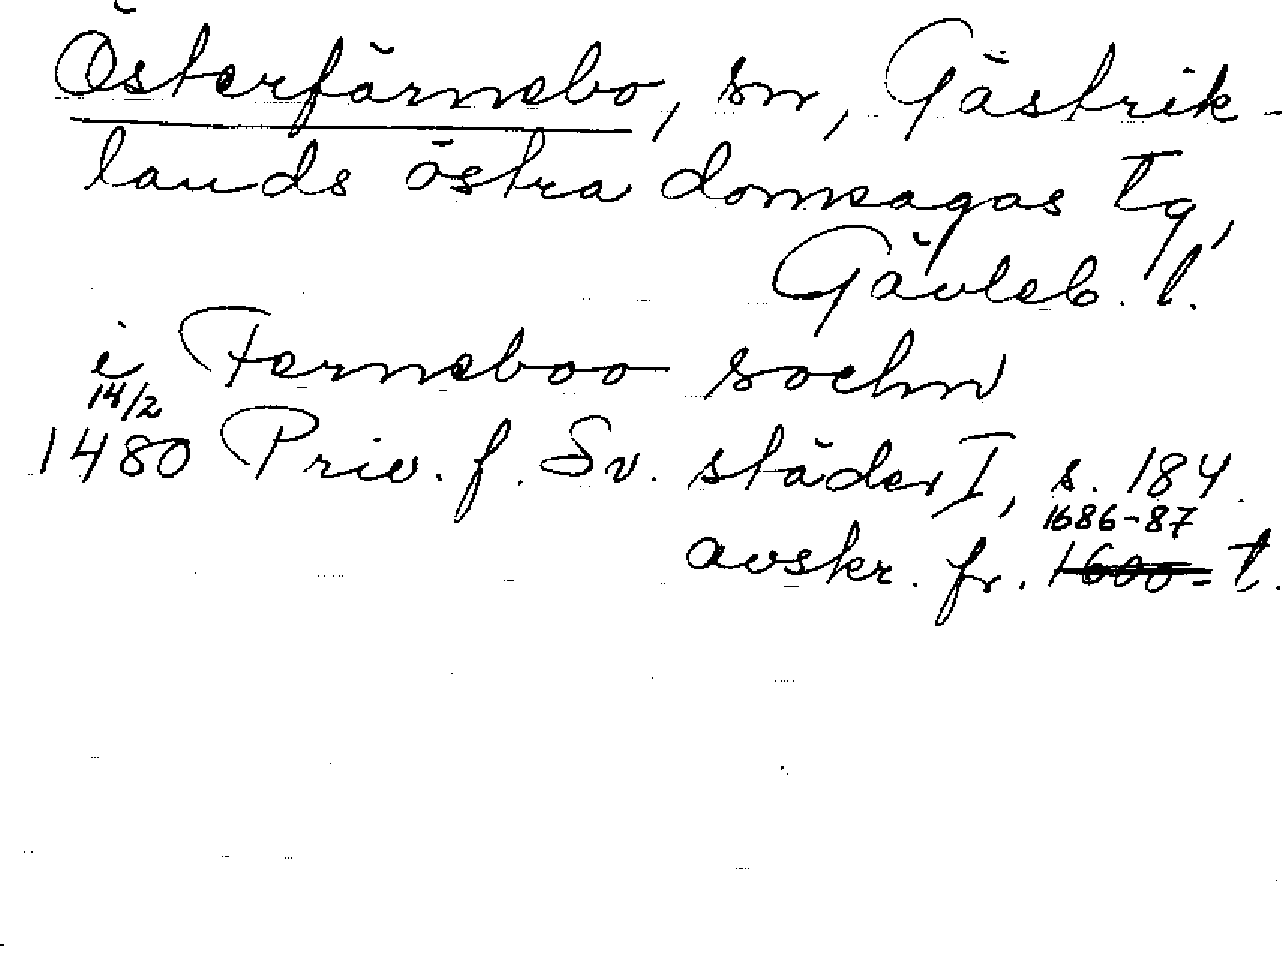 Österfärnebo, sn, Gästrik-
lands östra domsagas tg,
Gävleb. l.
i Ferneboo sochn
14/2
1480 Priv. f. Sv. städer I, s. 184.
1686-87
avskr. fr. 1600-t.